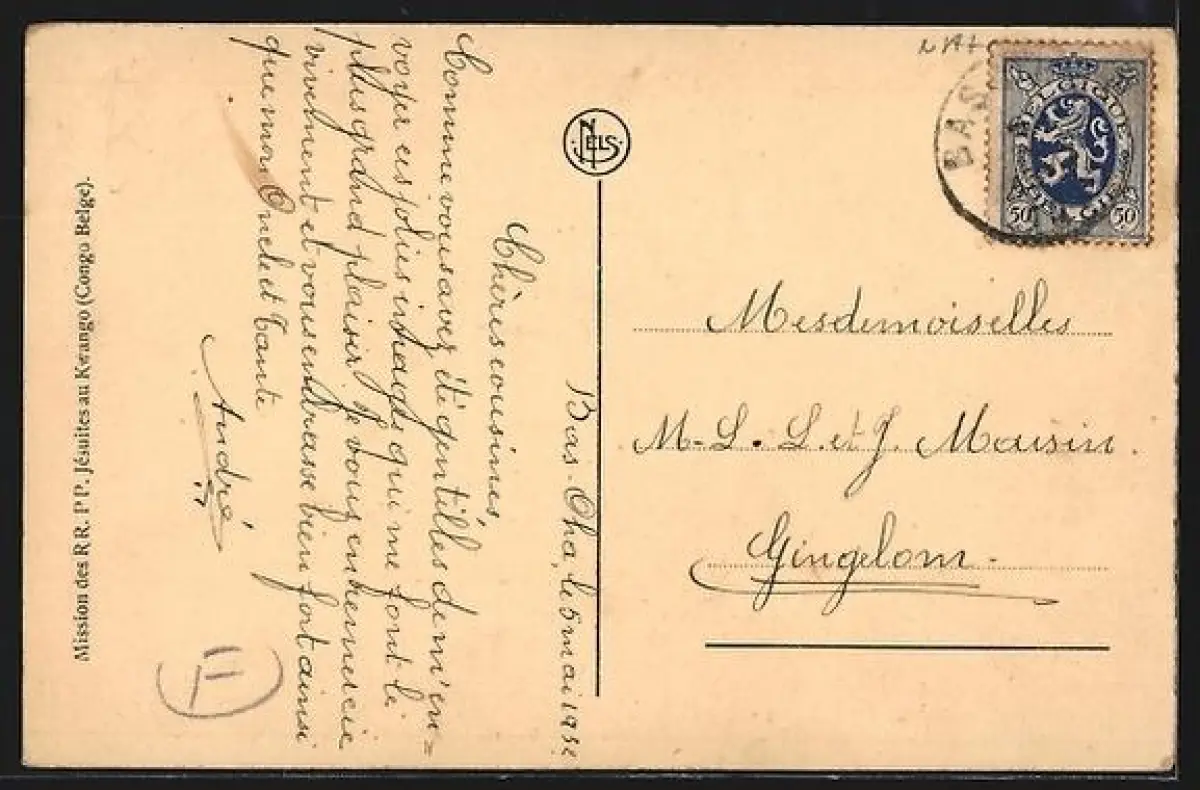 Bas-Oha, le 5 mai 1932
Chères cousines,
Comme vous avez été gentilles de m'en-
voyer ces jolies images qui me font le
plus grand plaisir. Je vous en remercie
vivement et vous embrasse bien fort ainsi
que mon Oncle et Tante
André
11
Mission des RR. PP. Jésuites au Kwango (Congo Belge).
NELS
BAS
BELGIQUE
BELGIE
50 50
Mesdemoiselles
M-L. L. et J. Maisin.
Gingelom.